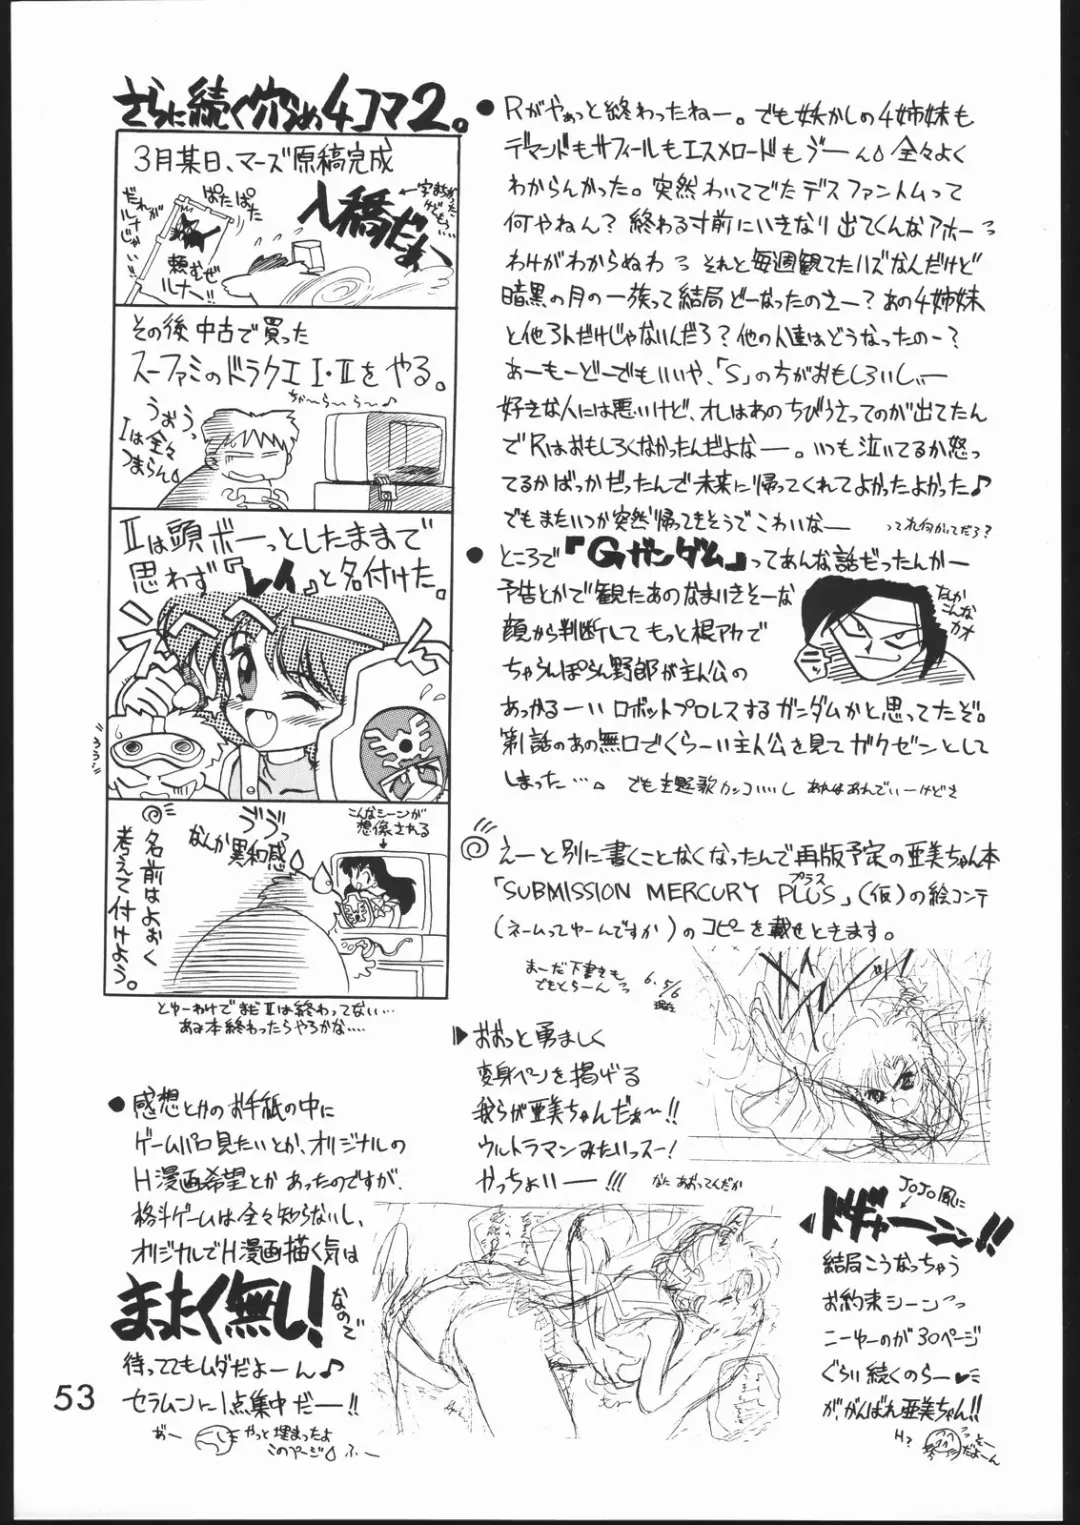 さらに続く穴うめ4コマ2。
3月某日、マーズ原稿完成
入稿だぁ
←字まちがった
けどもう…
だれが
ルナじゃい!!
ぱたぱた
頼むぜ
ルナー!!
その後中古で買った
スーファミのドラクエⅠ・Ⅱをやる。
ちゃ〜ら〜ら〜♪
うおうっ
Ⅰは全々
つまらん。
Ⅱは頭ボーっとしたままで
思わず『レイ』と名付けた。
ヴヴッ
なんか異和感
こんなシーンが
想像される
名前はよおく
考えて付けよう。
とゆーわけでまだⅡは終わってない…
あみ本終わったらやろかな….
●Rがやぁっと終わったねー。でも妖かしの4姉妹も
デマンドもサフィールもエスメロードもゔーん。全々よく
わからんかった。突然わいてでたデスファントムって
何やねん?終わる寸前にいきなり出てくんなアホーっ
わけがわからぬわっ それと毎週観てたハズなんだけど
暗黒の月の一族って結局どーなったのさー?あの4姉妹
と他3人だけじゃないんだろ?他の人達はどうなったのー?
あーもーどーでもいいや、「S」の方がおもしろいしぃー
好きな人には悪いけど、オレはあのちびうさってのが出てたん
でRはおもしろくなかったんだよなー。いつも泣いてるか怒っ
てるかばっかだったんで未来に帰ってくれてよかったよかった♪
でもまたいつか突然帰ってきそうでこわいなー ってれ何がいてだろ?
●ところで『Gガンダム』ってあんな話だったんかー
予告とかで観たあのなまいきそーな
顔から判断してもっと根アカで
ちゃらんぽらん野郎が主人公の
あっかるーいロボットプロレスするガンダムかと思ってたぞ。
第1話のあの無口ざくらーい主人公を見てガクゼンとして
しまった…。 でも主題歌カッコいいし あれはあれでいーけどさ
たしか
こんな
カオ
えーと別に書くことなくなったんで再版予定の亜美ちゃん本
「SUBMISSION MERCURY PLUS」(仮)の絵コンテ
プラス
(ネームってゆーんですか)のコピーを載せときます。
まーだ下書きも
でもとらーんっ
6.5/6
現在
▶おおっと勇ましく
変身ペンを掲げる
我らが亜美ちゃんだぁ〜!!
ウルトラマンみたいっスー!
かっちょいいー!!! なにあおってんだか
●感想とかのお手紙の中に
ゲームパロ見たいとか、オリジナルの
H漫画希望とかあったのですが、
格斗ゲームは全々知らないし、
オリジナルでH漫画描く気は
まったく無し!なので
待っててもムダだよーん♪
セラムンに1点集中だー!!
おー
やっと埋まったよ
このページ。ふー
JoJo風に
ドギャーーン!!
結局こうなっちゃう
お約束シーンっっ
こーゆーのが30ページ
ぐらい続くのらー♥
が、がんばれ亜美ちゃん!!
H?
そーだよーん
53